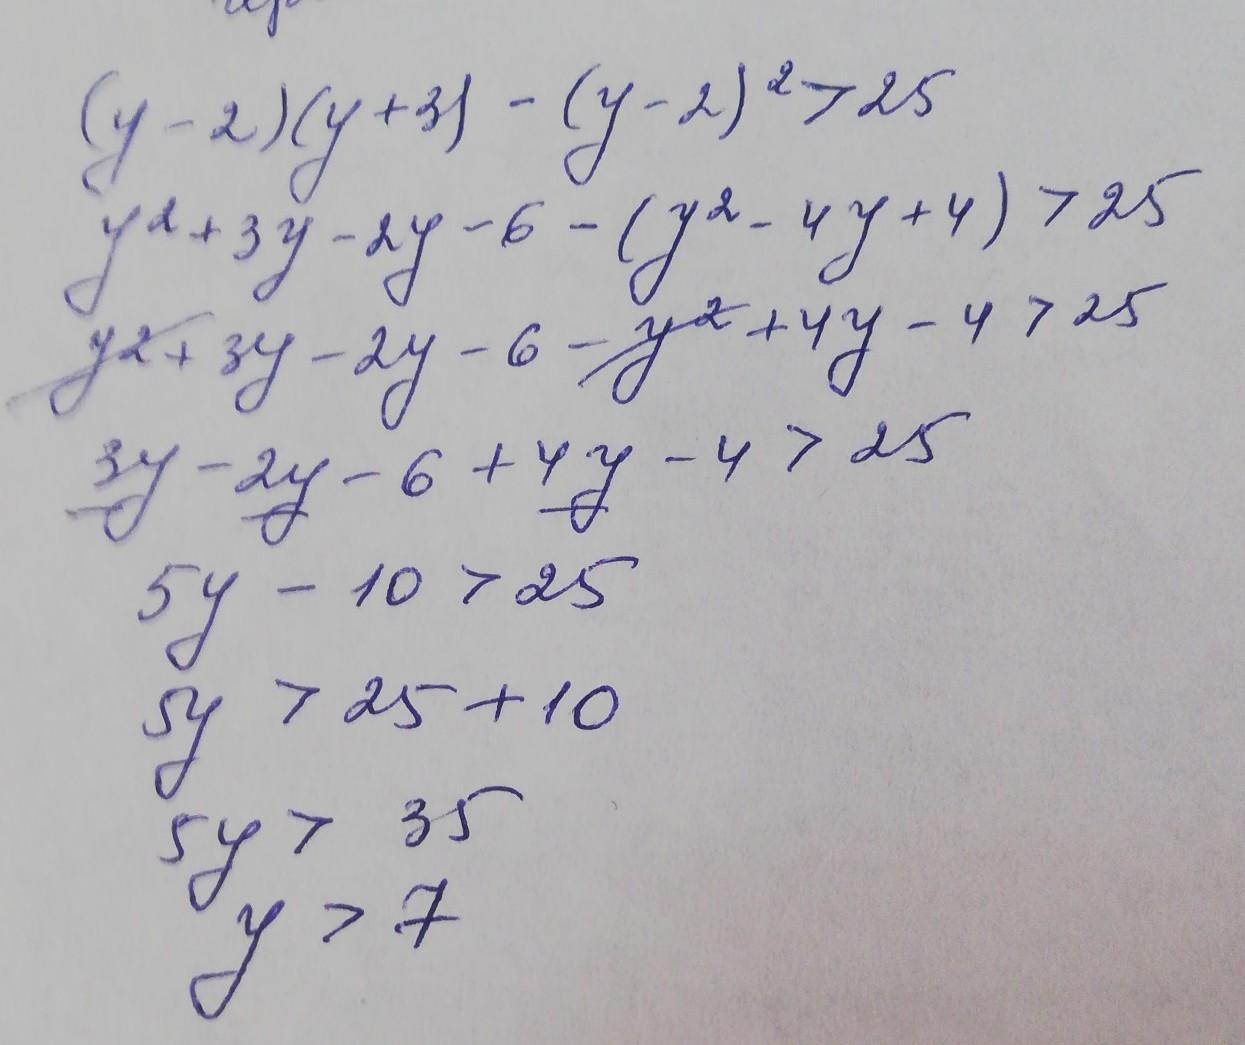 (y-2)(y+3)-(y-2)²>25
y²+3y-2y-6-(y²-4y+4)>25
y²+3y-2y-6-y²+4y-4>25
3y-2y-6+4y-4>25
5y-10>25
5y>25+10
5y>35
y>7